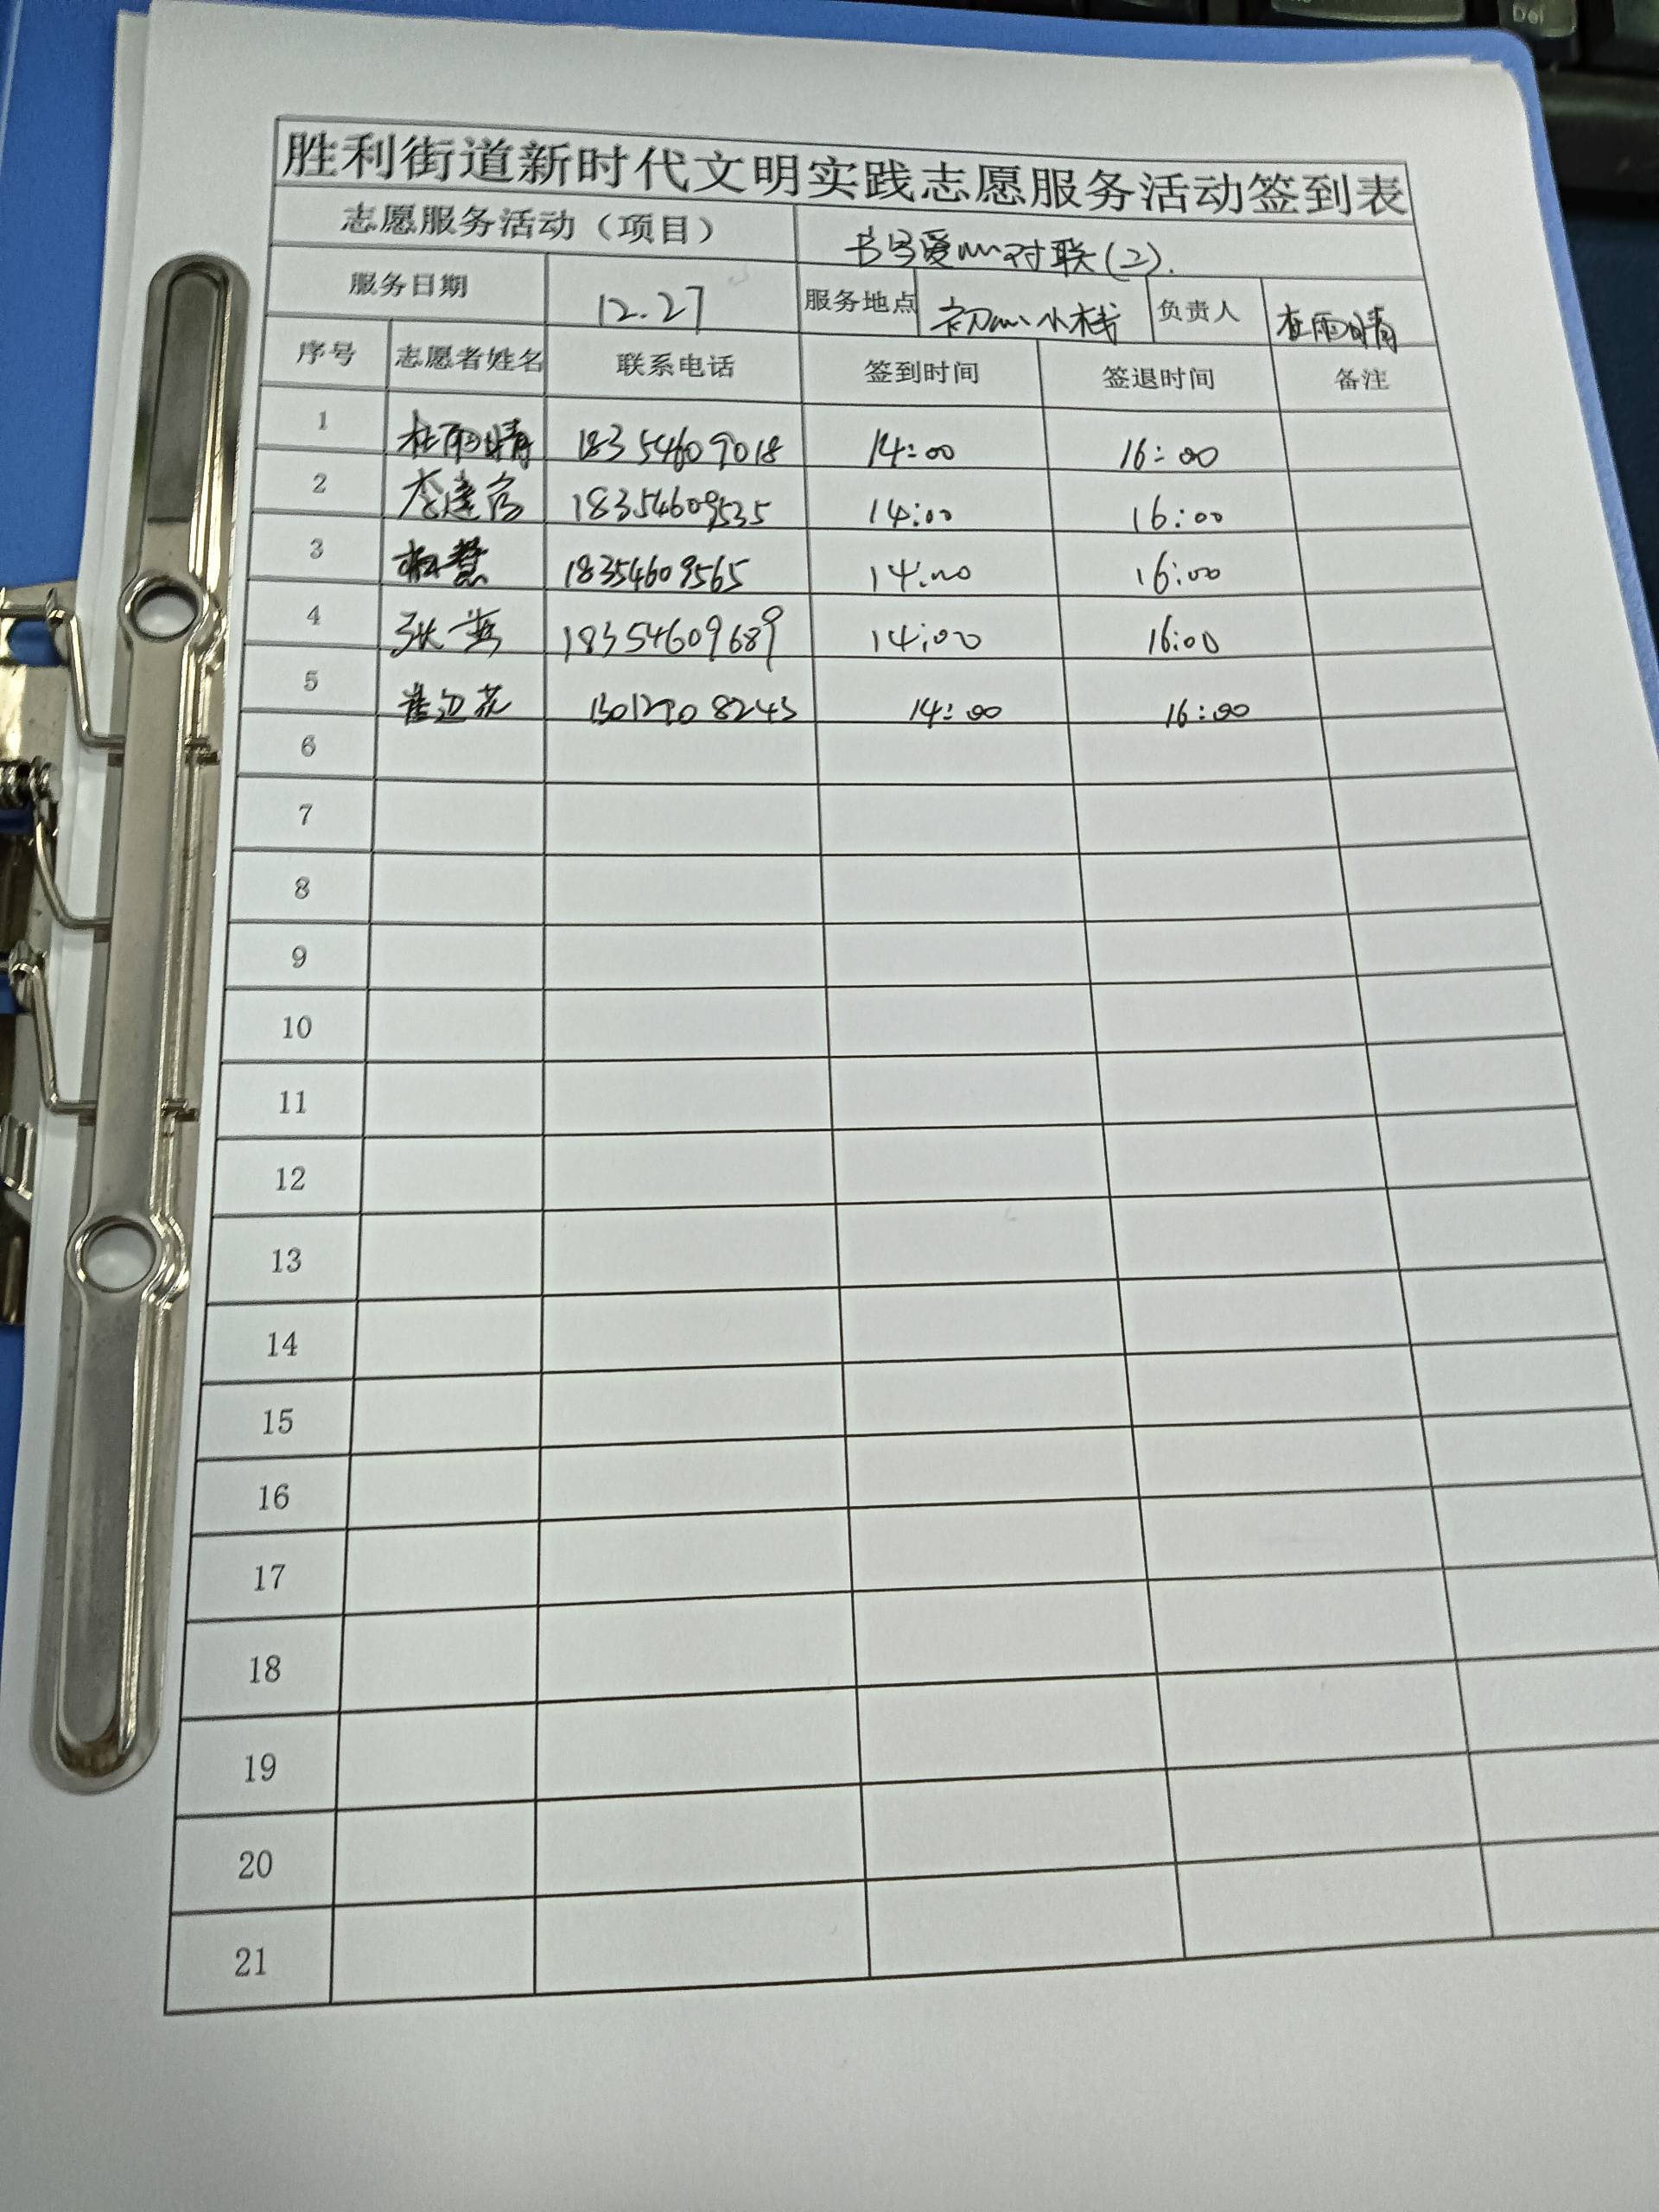 Del
胜利街道新时代文明实践志愿服务活动签到表
志愿服务活动（项目） 书写爱心对联(2).
服务日期 12.27 服务地点 初心小栈 负责人 杜雨晴
序号 志愿者姓名 联系电话 签到时间 签退时间 备注
1 杜雨晴 18354609018 14:00 16:00
2 18354609535 14:00 16:00
3 18354609565 14:00 16:00
4 张 18354609689 14:00 16:00
5 花 14:00 16:00
6
7
8
9
10
11
12
13
14
15
16
17
18
19
20
21